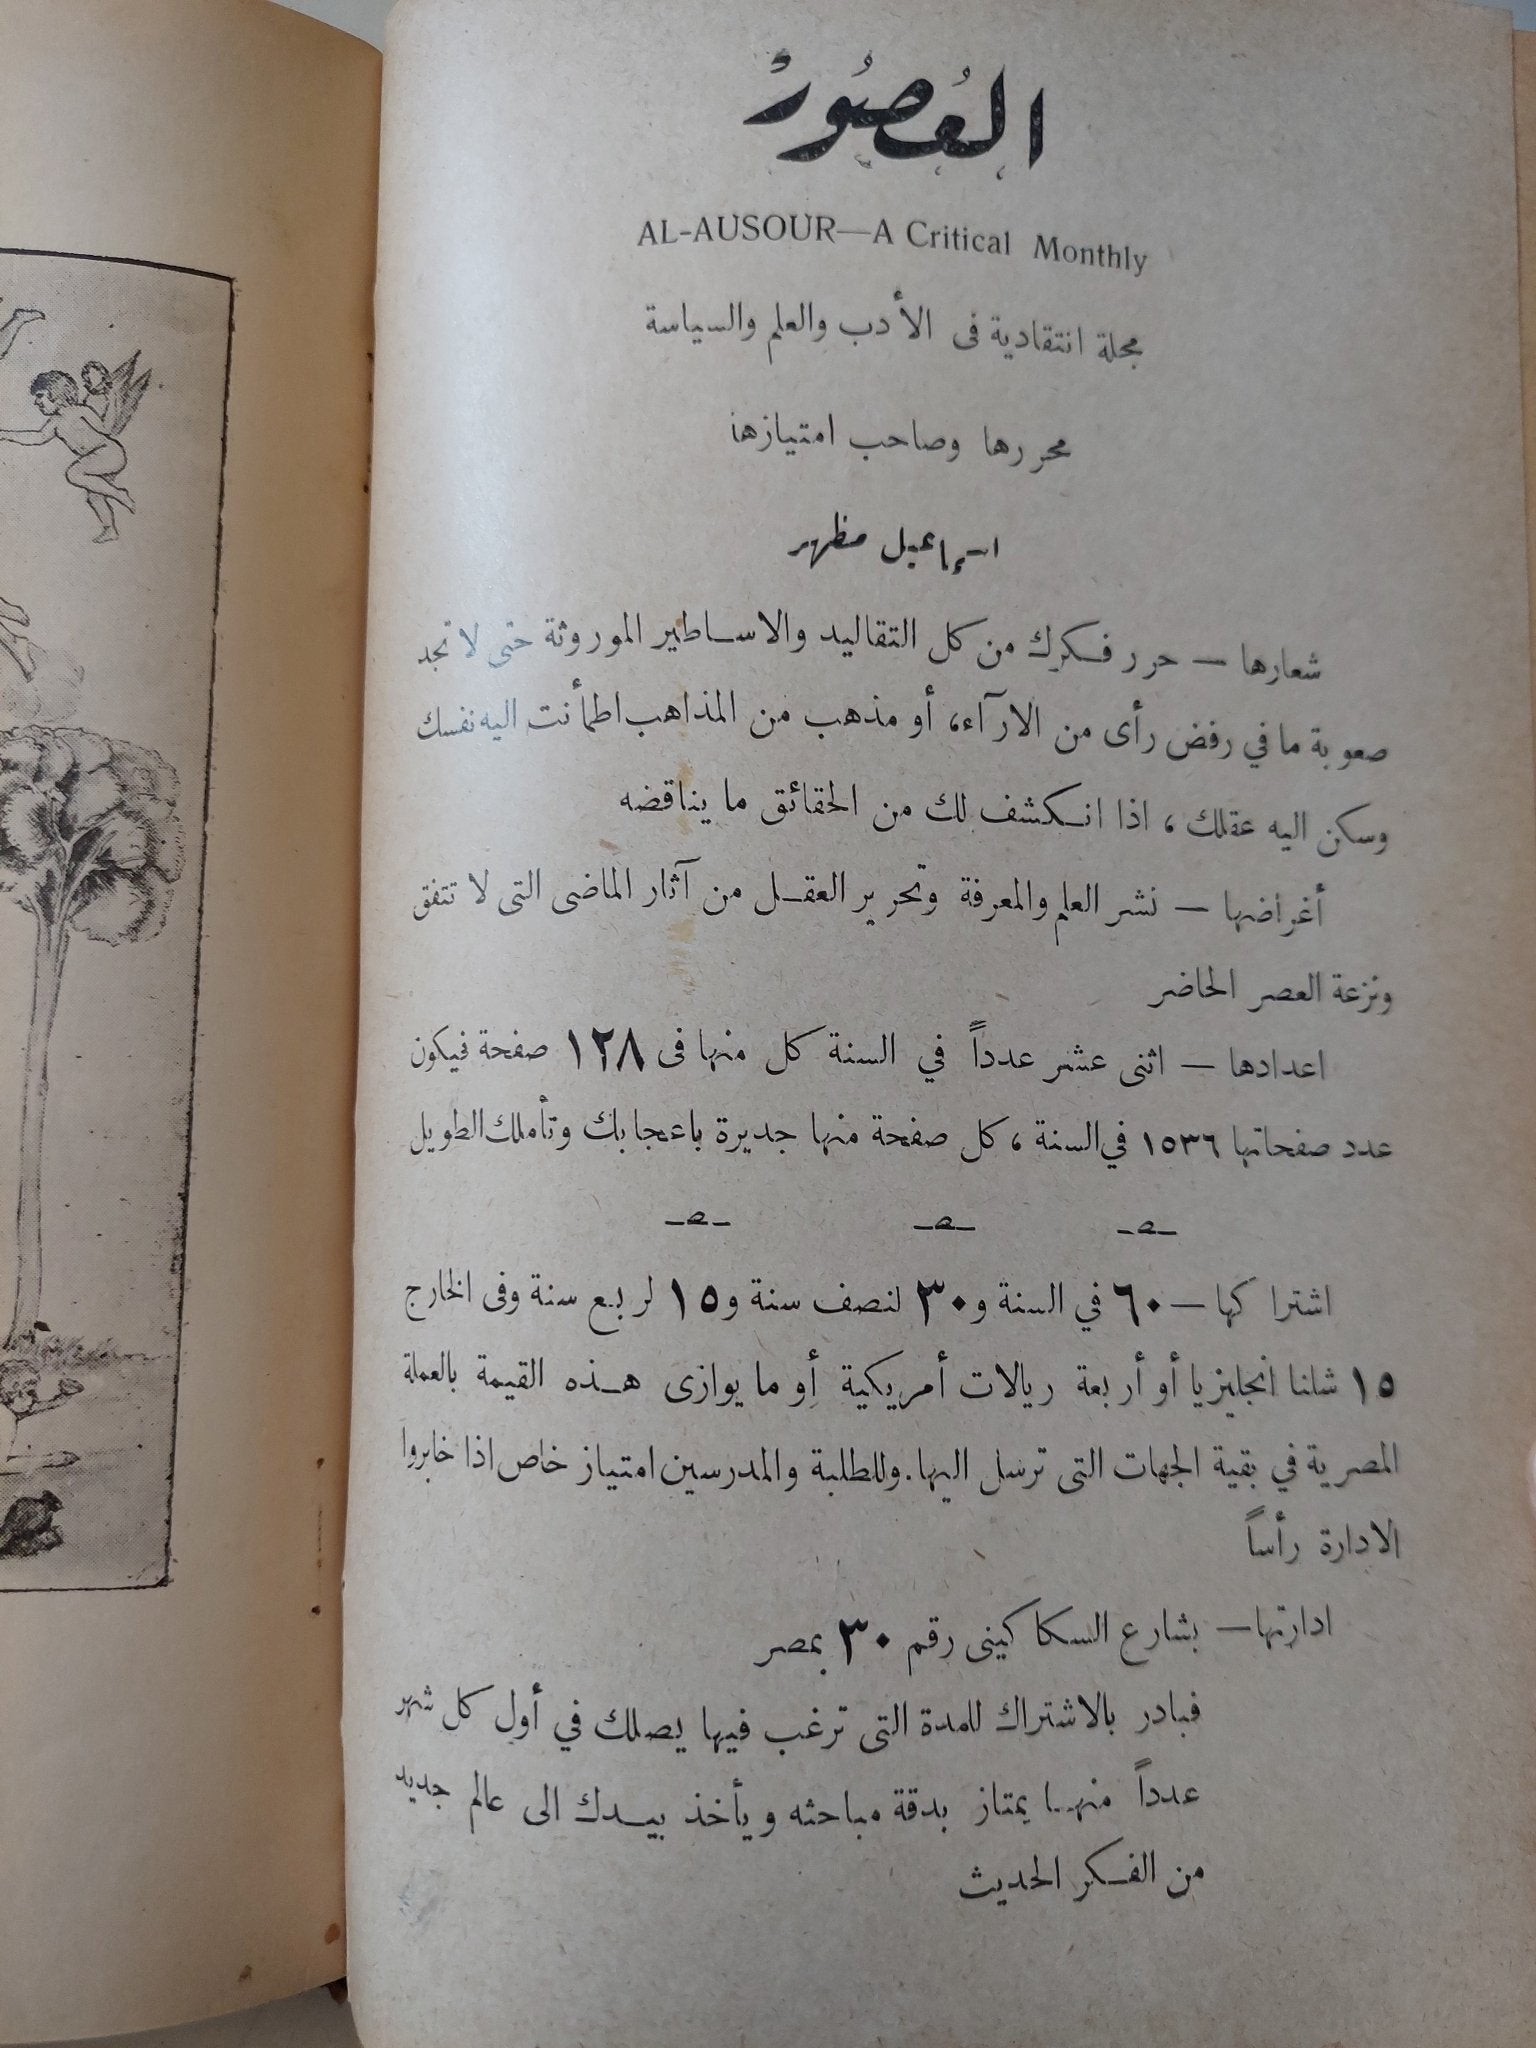 العُصُورْ
AL-AUSOUR—A Critical Monthly
مجلة انتقادية فى الأدب والعلم والسياسة
محررها وصاحب امتيازها
اسماعيل مظهر
شعارها — حرر فكرك من كل التقاليد والاساطير الموروثة حتى لا تجد
صعوبة ما في رفض رأى من الارآء، أو مذهب من المذاهب اطمأنت اليه نفسك
وسكن اليه عقلك، اذا انكشف لك من الحقائق ما يناقضه
أغراضها — نشر العلم والمعرفة وتحرير العقل من آثار الماضى التى لا تتفق
ونزعة العصر الحاضر
اعدادها — اثنى عشر عدداً في السنة كل منها فى ١٢٨ صفحة فيكون
عدد صفحاتها ١٥٣٦ في السنة، كل صفحة منها جديرة باعجابك وتأملك الطويل
اشتراكها — ٦٠ في السنة و ٣٠ لنصف سنة و ١٥ لربع سنة وفى الخارج
١٥ شلنا انجليزيا أو أربعة ريالات أمريكية أو ما يوازى هذه القيمة بالعملة
المصرية في بقية الجهات التى ترسل اليها. وللطلبة والمدرسين امتياز خاص اذا خابروا
الادارة رأساً
ادارتها — بشارع السكاكينى رقم ٣٠ بمصر
فبادر بالاشتراك للمدة التى ترغب فيها يصلك في أول كل شهر
عدداً منها يمتاز بدقة مباحثه ويأخذ بيدك الى عالم جديد
من الفكر الحديث